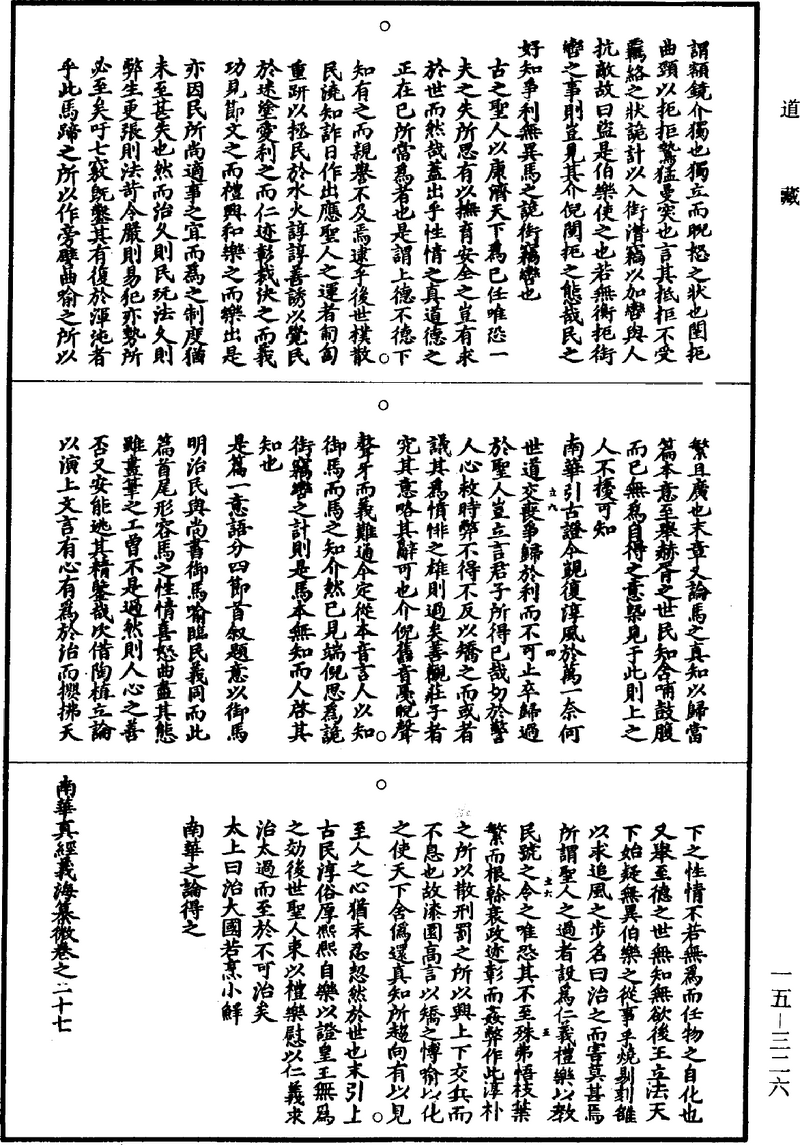 道藏
謂額鏡介獨也獨立而睨怒之狀也闉扼
曲頸以扼拒鷙猛曼突也言其抵拒不受
羈絡之狀詭計以入銜潛竊以加轡與人
抗敵故曰盜是伯樂使之也若無衡扼銜
轡之事則豈見其介倪闉扼之態哉民之
好知爭利無異馬之詭銜竊轡也
古之聖人以康濟天下為己任唯恐一
夫之失所思有以撫育安全之豈有求
於世而然哉蓋出乎性情之真道德之
正在己所當為者也是謂上德不德下
知有之而親譽不及焉逮乎後世樸散
民澆知詐日作出應聖人之運者匍匐
重趼以拯民於水火諄諄善誘以覺民
於迷塗愛利之而仁迹彰裁決之而義
功見節文之而禮興和樂之而樂出是
亦因民所尚適事之宜而為之制度猶
未至甚失也然而治久則民玩法久則
弊生更張則法苛令嚴則易犯亦勢所
必至矣吁七竅既鑿其有復於渾沌者
乎此馬蹄之所以作旁譬曲喻之所以
繁且廣也末章又論馬之真知以歸當
篇本意至舉赫胥之世民知含哺鼓腹
而已無為自得之意槩見于此則上之
人不擾可知
南華引古證今覬復淳風於萬一奈何
世道交喪爭歸於利而不可止卒歸過
於聖人豈立言君子所得已哉切於警
人心救時弊不得不反以矯之而或者
議其為憤悱之雄則過矣善觀莊子者
究其意略其辭可也介倪舊音戛睨聲
聱牙而義難通今定從本音言人以知
御馬而馬之知介然已見端倪思為詭
銜竊轡之計則是馬本無知而人啓其
知也
是篇一意語分四節首敘題意以御馬
明治民與尚書御馬喻臨民義同而此
篇首尾形容馬之性情喜怒曲盡其態
雖畫筆之工曾不是過然則人心之善
否又安能逃其精鑒哉次借陶植立論
以演上文言有心有為於治而攖拂天
下之性情不若無為而任物之自化也
又舉至德之世無知無欲後王立法天
下始疑無異伯樂之從事乎燒剔刻雒
以求追風之步名曰治之而害莫甚焉
所謂聖人之過者設為仁義禮樂以教
民號之令之唯恐其不至殊弗悟枝葉
繁而根榦衰政迹彰而姦弊作此淳朴
之所以散刑罰之所以興上下交兵而
不息也故漆園高言以矯之博喻以化
之使天下舍偽還真知所趨向有以見
至人之心猶未忍忽然於世也末引上
古民淳俗厚熙熙自樂以證皇王無為
之効後世聖人束以禮樂慰以仁義求
治太過而至於不可治矣
太上曰治大國若烹小鮮
南華之論得之
南華真經義海纂微卷之二十七
一五—三二六